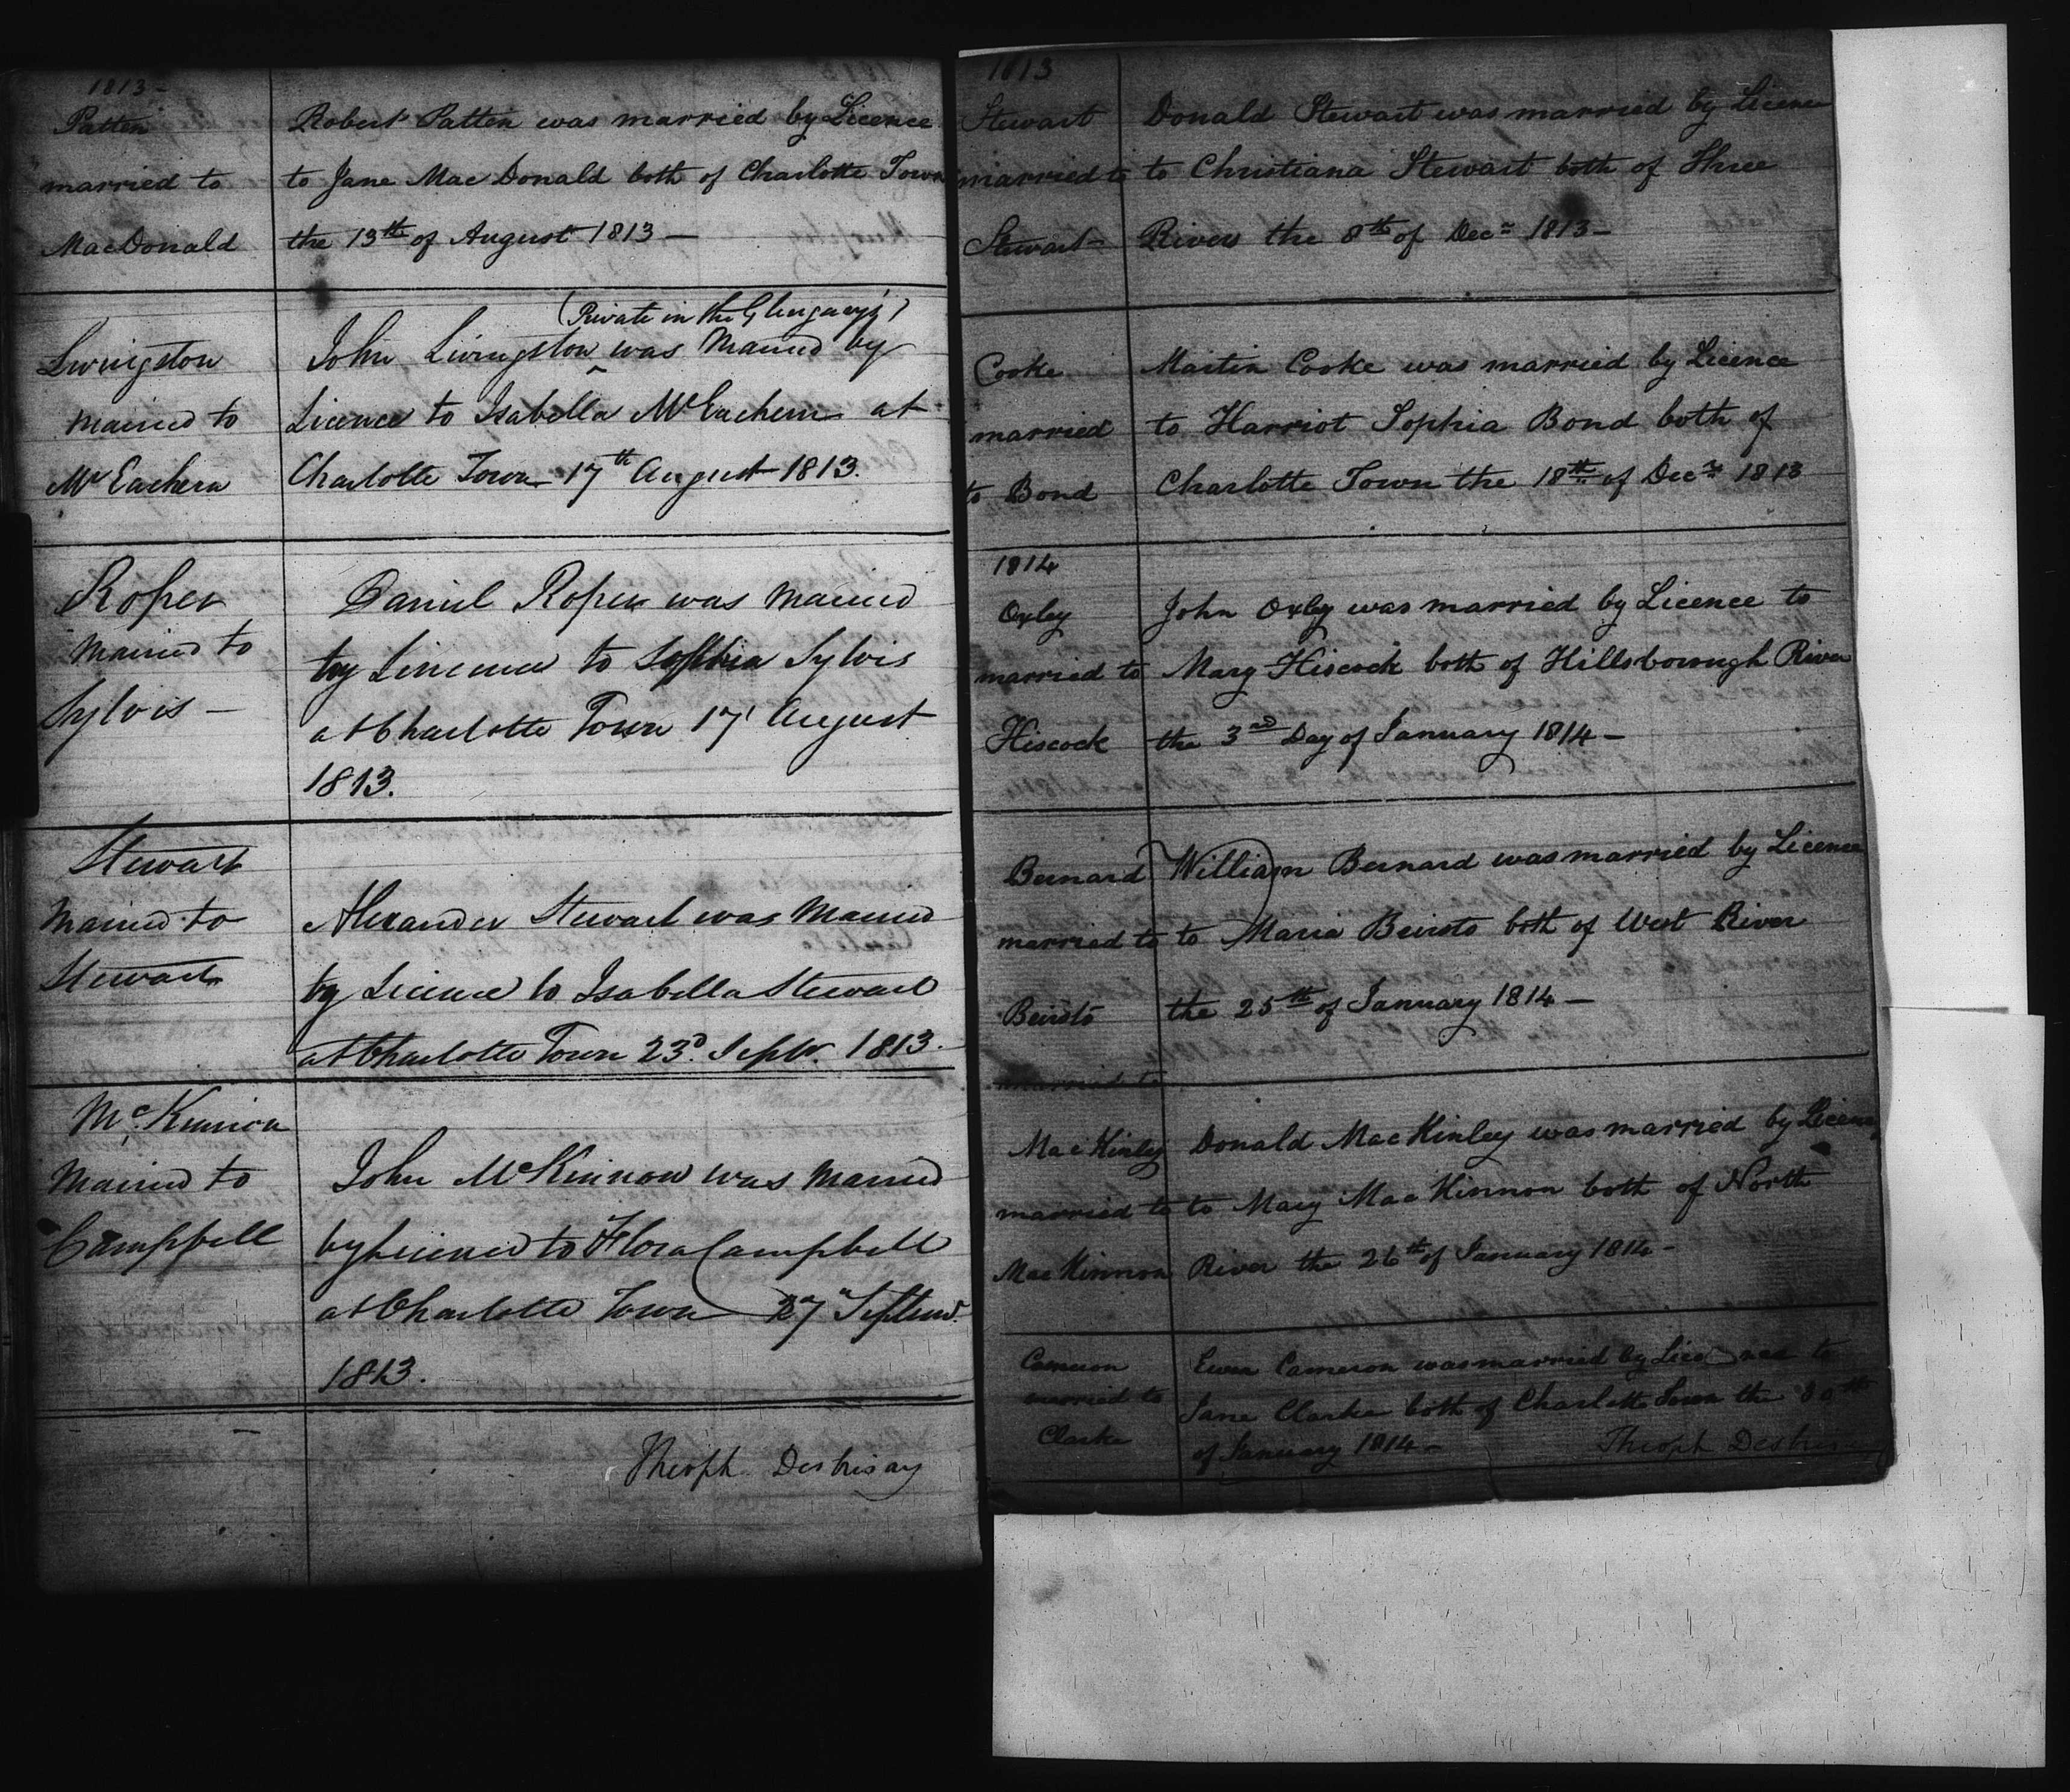 1813 -
Patten
married to
MacDonald
Robert Patten was married by Licence
to Jane Mac Donald both of Charlotte Town
the 13th of August 1813 -
Livingston
married to
McEachern
(Private in the Glengary's)
John Livingston ^ was married by
Licence to Isabella McEachern at
Charlotte Town 17th August 1813.
Roper
married to
Sylvis -
Daniel Roper was married
by Licence to Sophia Sylvis
at Charlotte Town 17 August
1813.
Stewart
married to
Stewart
Alexander Stewart was married
by Licence to Isabella Stewart
at Charlotte Town 23d. Septr. 1813.
McKinnon
married to
Campbell
John McKinnon was married
by Licence to Flora Campbell
at Charlotte Town 27 Septemr.
1813.
Theoph Desbrisay
1813
Stewart
married to
Stewart -
Donald Stewart was married by Licence
to Christiana Stewart both of Three
Rivers the 8th of Decr 1813 -
Cooke
married
to Bond
Martin Cooke was married by Licence
to Harriot Sophia Bond both of
Charlotte Town the 18th of Decr 1813
1814
Oxley
married to
Hiscock
John Oxley was married by Licence to
Mary Hiscock both of Hillsborough River
the 3rd Day of January 1814 -
Bernard
married to
Beirsto
William Bernard was married by Licence
to Maria Beirsto both of West River
the 25th of January 1814 -
married to
MacKinley
married to
MacKinnon
Donald MacKinley was married by Licence
to Mary MacKinnon both of North
River the 26th of January 1814 -
Cameron
married to
Clarke
Ewen Cameron was married by Licence to
Jane Clarke both of Charlotte Town the 30th
of January 1814 -
Theoph Desbrisay